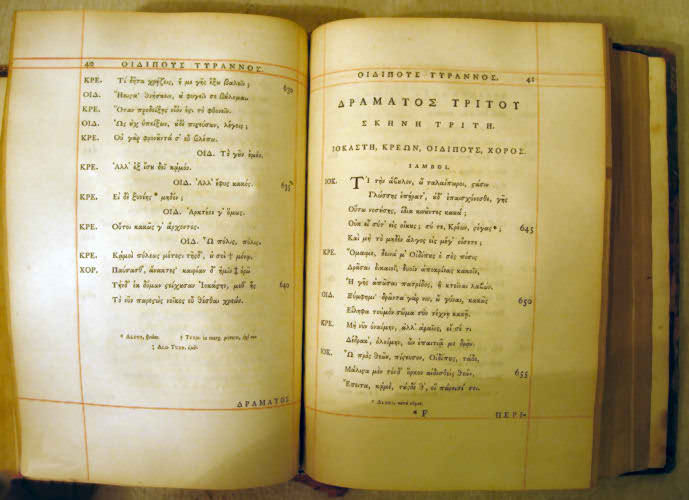 40 ΟΙΔΙΠΟΥΣ ΤΥΡΑΝΝΟΣ.
ΚΡΕ. Τί δῆτα χρῄζεις; ἦ με γῆς ἔξω βαλεῖν;
ΟΙΔ. Ἥκιστα· θνήσκειν, οὐ φυγεῖν σε βούλομαι. 630
ΚΡΕ. Ὅταν προδείξῃς οἷόν ἐστι τὸ φθονεῖν.
ΟΙΔ. Ὡς οὐχ ὑπείξων, οὐδὲ πιστεύσων, λέγεις;
ΚΡΕ. Οὐ γὰρ φρονοῦντά σ' εὖ βλέπω.
ΟΙΔ. Τὸ γοῦν ἐμόν.
ΚΡΕ. Ἀλλ' ἐξ ἴσου δεῖ κᾀμόν.
ΟΙΔ. Ἀλλ' ἔφυς κακός. 635
ΚΡΕ. Εἰ δὲ ξυνίης * μηδέν;
ΟΙΔ. Ἀρκτέον γ' ὅμως.
ΚΡΕ. Οὔτοι κακῶς γ' ἄρχοντος.
ΟΙΔ. Ὦ πόλις, πόλις.
ΚΡΕ. Κᾀμοὶ πόλεως μέτεστι τῆσδ', οὐ σοὶ † μόνῳ.
ΧΟΡ. Παύσασθ', ἄνακτες· καιρίαν δ' ‡ ὁρῶ
Τήνδ' ἐκ δόμων στείχουσαν Ἰοκάστην, μεθ' ἧς 640
Τὸ νῦν παρεστὼς νεῖκος εὖ θέσθαι χρεών.
ΔΡΑΜΑΤΟΣ
ΟΙΔΙΠΟΥΣ ΤΥΡΑΝΝΟΣ. 41
ΔΡΑΜΑΤΟΣ ΤΡΙΤΟΥ
ΣΚΗΝΗ ΤΡΙΤΗ.
ΙΟΚΑΣΤΗ, ΚΡΕΩΝ, ΟΙΔΙΠΟΥΣ, ΧΟΡΟΣ.
ΙΑΜΒΟΙ.
ΙΟΚ. ΤΙ τὴν ἄβουλον, ὦ ταλαίπωροι, στάσιν
Γλώσσης ἐπήρατ', οὐδ' ἐπαισχύνεσθε, γῆς
Οὕτω νοσούσης, ἴδια κινοῦντες κακά;
Οὐκ εἶ σύ τ' εἰς οἴκους; σύ τε, Κρέων, στέγας *; 645
Καὶ μὴ τὸ μηδὲν ἄλγος εἰς μέγ' οἴσετε;
ΚΡΕ. Ὅμαιμε, δεινά μ' Οἰδίπους ὁ σὸς πόσις
Δρᾶσαι δικαιοῖ, δυοῖν ἀποκρίνας κακοῖν,
Ἢ γῆς ἀπῶσαι πατρίδος, ἢ κτεῖναι λαβών.
ΟΙΔ. Ξύμφημι· δρῶντα γάρ νιν, ὦ γύναι, κακῶς 650
Εἴληφα τοὐμὸν σῶμα σὺν τέχνῃ κακῇ.
ΚΡΕ. Μή νῦν ὀναίμην, ἀλλ' ἀραῖος, εἴ σέ τι
Δέδρακ', ὀλοίμην, ὧν ἐπαιτιᾷ με δρᾷν.
ΙΟΚ. Ὦ πρὸς θεῶν, πίστευσον, Οἰδίπους, τάδε,
Μάλιστα μὲν τόνδ' ὅρκον αἰδεσθεὶς θεῶν, 655
Ἔπειτα, κᾀμὲ, τούσδε θ', οἳ πάρεισί σοι.
* F ΠΕΡΙ-